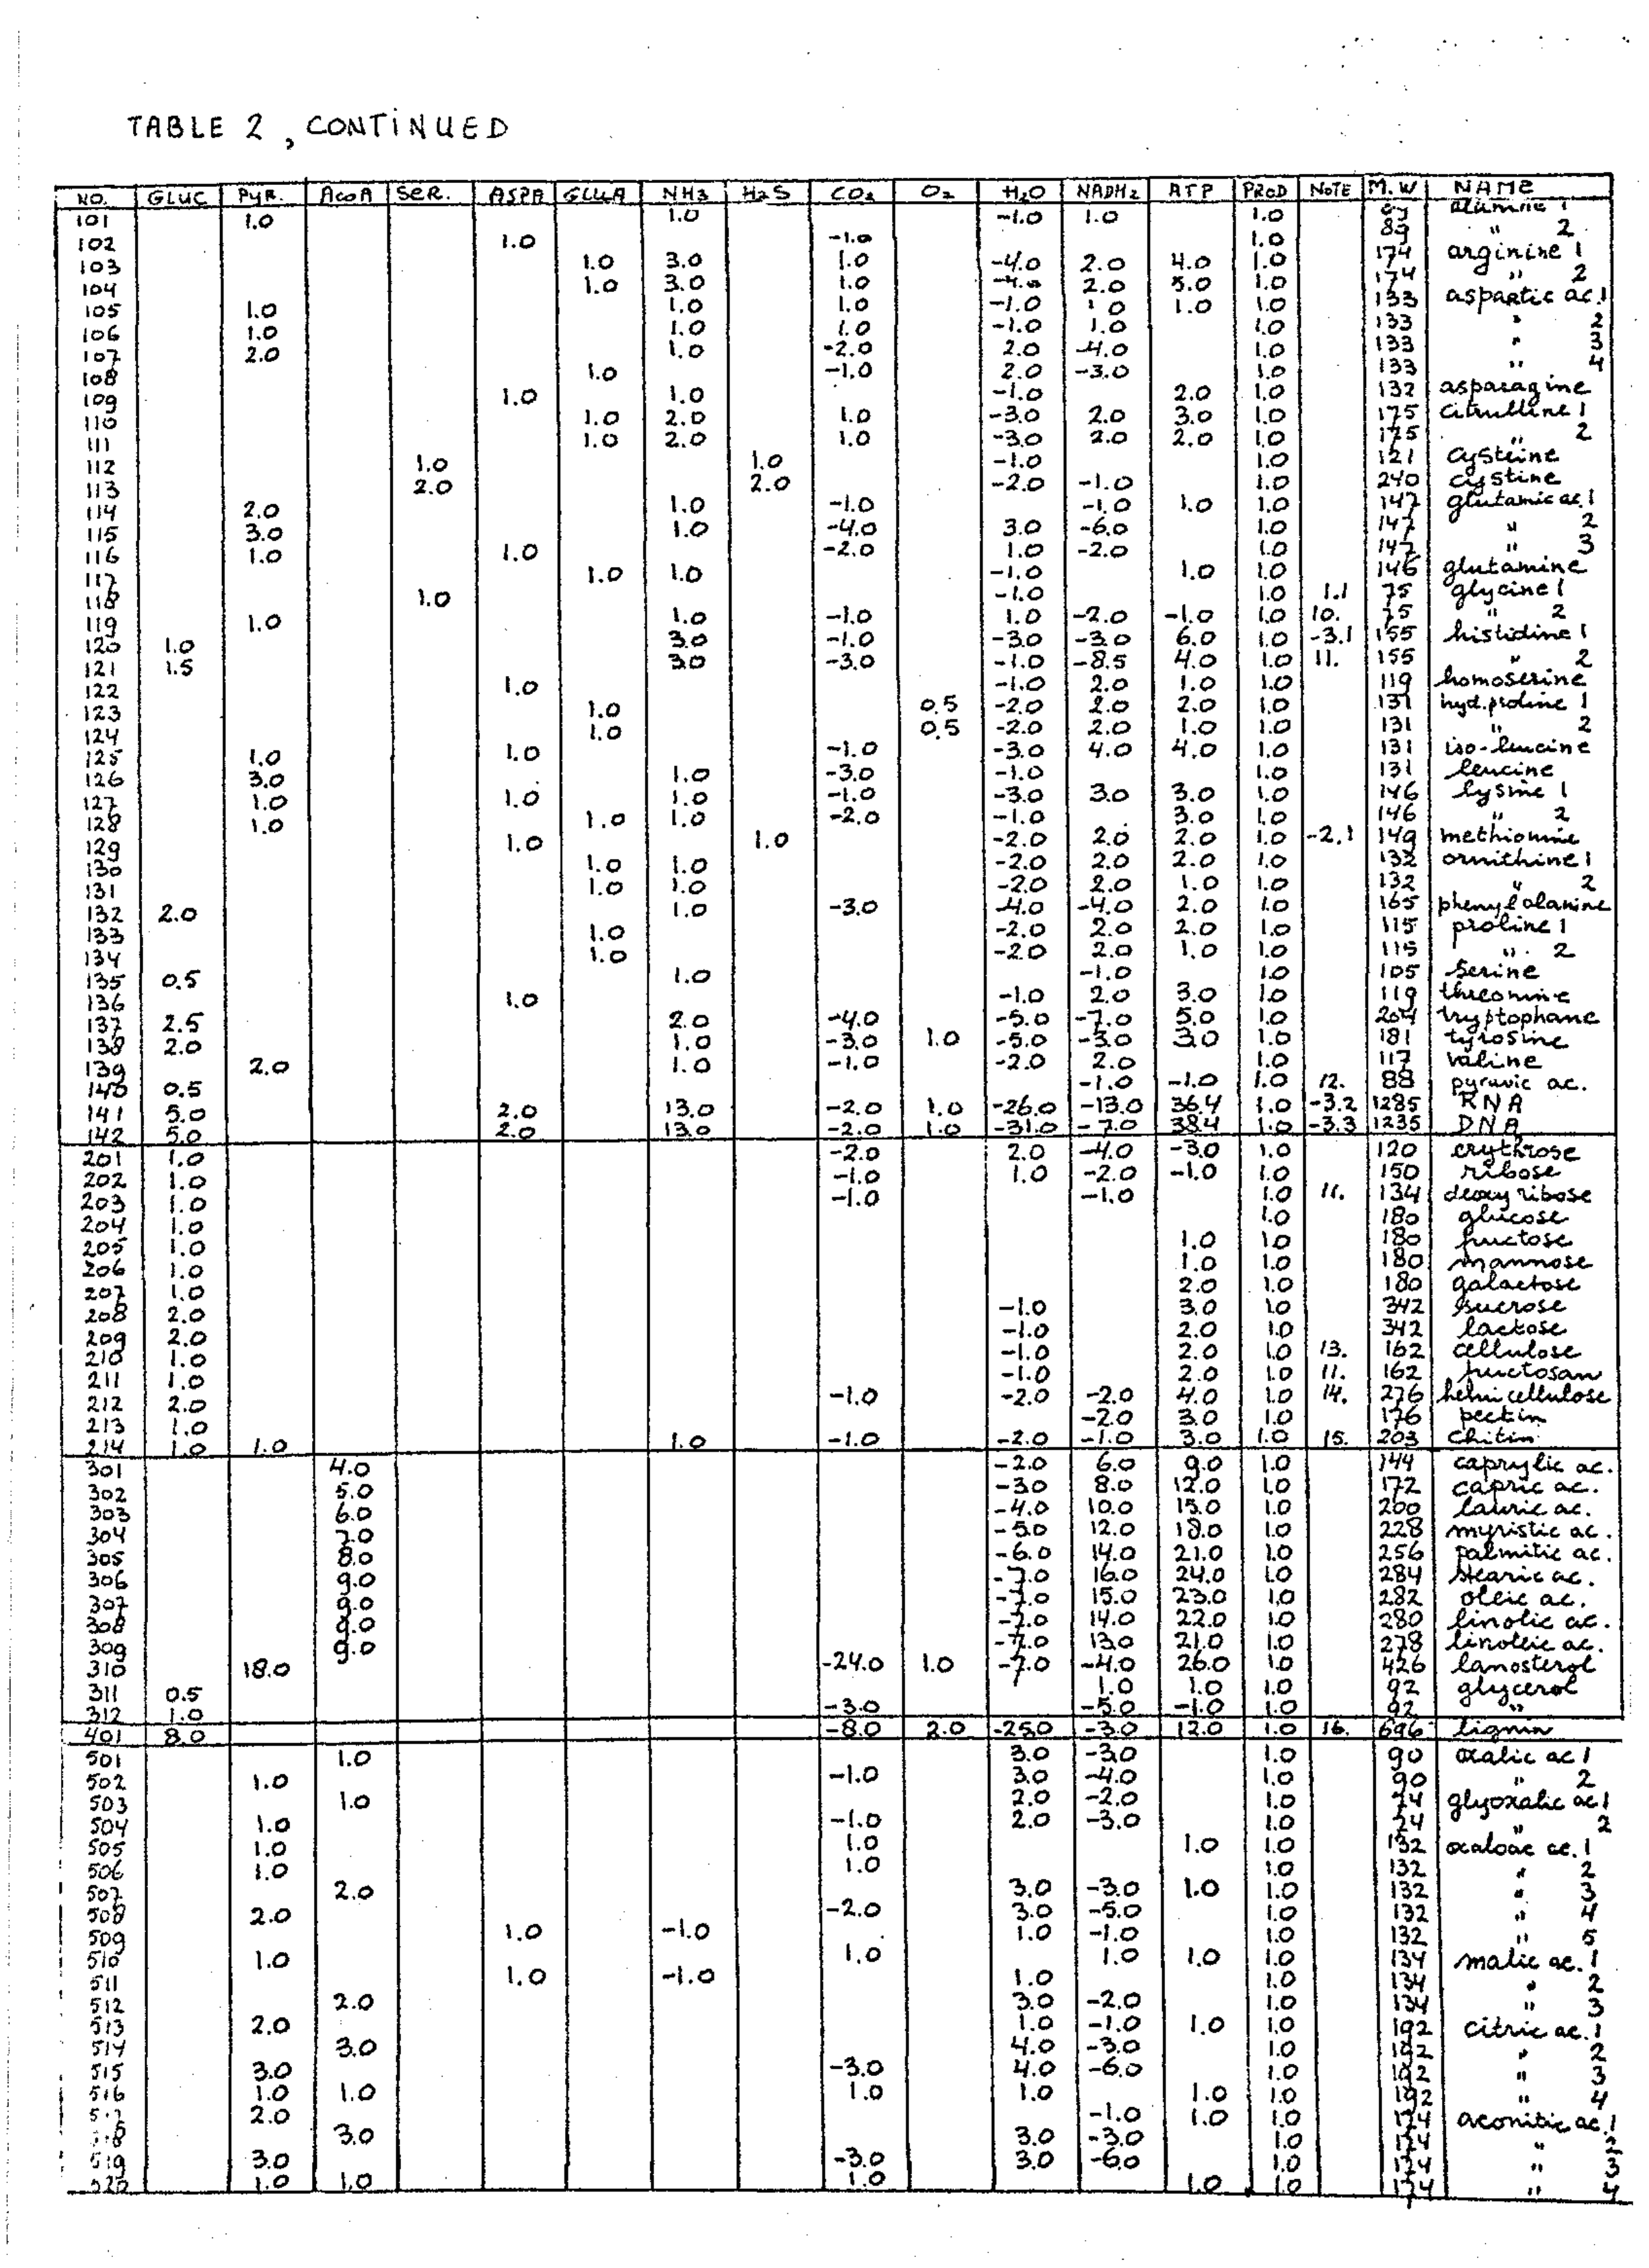 TABLE 2, CONTINUED
NO. GLUC PYR. ACoA SER. ASPA GLUA NH3 H2S CO2 O2 H2O NADH2 ATP PROD NOTE M.W NAME
101 1.0 1.0 -1.0 1.0 1.0 alanine 1
102 1.0 -1.0 1.0 89 " 2
103 1.0 3.0 1.0 -4.0 2.0 4.0 1.0 174 arginine 1
104 1.0 3.0 1.0 -4.0 2.0 5.0 1.0 174 " 2
105 1.0 1.0 1.0 -1.0 1.0 1.0 1.0 133 aspartic ac.1
106 1.0 1.0 1.0 -1.0 1.0 1.0 133 " 2
107 2.0 1.0 -2.0 2.0 -4.0 1.0 133 " 3
108 1.0 -1.0 2.0 -3.0 1.0 133 " 4
109 1.0 1.0 -1.0 2.0 1.0 132 asparagine
110 1.0 2.0 1.0 -3.0 2.0 3.0 1.0 175 citrulline 1
111 1.0 2.0 1.0 -3.0 2.0 2.0 1.0 175 " 2
112 1.0 1.0 -1.0 1.0 121 cysteine
113 2.0 2.0 -2.0 -1.0 1.0 240 cystine
114 2.0 1.0 -1.0 -1.0 1.0 1.0 147 glutamic ac.1
115 3.0 1.0 -4.0 3.0 -6.0 1.0 147 " 2
116 1.0 1.0 -2.0 1.0 -2.0 1.0 147 " 3
117 1.0 1.0 -1.0 1.0 1.0 146 glutamine
118 1.0 -1.0 1.0 1.1 75 glycine 1
119 1.0 1.0 -1.0 1.0 -2.0 -1.0 1.0 10. 75 " 2
120 1.0 3.0 -1.0 -3.0 -3.0 6.0 1.0 -3.1 155 histidine 1
121 1.5 3.0 -3.0 -1.0 -8.5 4.0 1.0 11. 155 " 2
122 1.0 -1.0 2.0 1.0 1.0 119 homoserine
123 1.0 0.5 -2.0 2.0 2.0 1.0 131 hyd.proline 1
124 1.0 0.5 -2.0 2.0 1.0 1.0 131 " 2
125 1.0 1.0 -1.0 -3.0 4.0 4.0 1.0 131 iso-leucine
126 3.0 1.0 -3.0 -1.0 1.0 131 leucine
127 1.0 1.0 1.0 -1.0 -3.0 3.0 3.0 1.0 146 lysine 1
128 1.0 1.0 1.0 -2.0 -1.0 3.0 1.0 146 " 2
129 1.0 1.0 -2.0 2.0 2.0 1.0 -2.1 149 methionine
130 1.0 1.0 -2.0 2.0 2.0 1.0 132 ornithine 1
131 1.0 1.0 -2.0 2.0 1.0 1.0 132 " 2
132 2.0 1.0 -3.0 -4.0 -4.0 2.0 1.0 165 phenylalanine
133 1.0 -2.0 2.0 2.0 1.0 115 proline 1
134 1.0 -2.0 2.0 1.0 1.0 115 " 2
135 0.5 1.0 -1.0 1.0 105 serine
136 1.0 -1.0 2.0 3.0 1.0 119 threonine
137 2.5 2.0 -4.0 -5.0 -7.0 5.0 1.0 204 tryptophane
138 2.0 1.0 -3.0 1.0 -5.0 -3.0 3.0 1.0 181 tyrosine
139 2.0 1.0 -1.0 -2.0 2.0 1.0 117 valine
140 0.5 -1.0 -1.0 1.0 12. 88 pyruvic ac.
141 5.0 2.0 13.0 -2.0 1.0 -26.0 -13.0 36.4 1.0 -3.2 1285 RNA
142 5.0 2.0 13.0 -2.0 1.0 -31.0 -7.0 38.4 1.0 -3.3 1235 DNA
201 1.0 -2.0 2.0 -4.0 -3.0 1.0 120 erythrose
202 1.0 -1.0 1.0 -2.0 -1.0 1.0 150 ribose
203 1.0 -1.0 -1.0 1.0 11. 134 deoxyribose
204 1.0 1.0 180 glucose
205 1.0 1.0 1.0 180 fructose
206 1.0 1.0 1.0 180 mannose
207 1.0 2.0 1.0 180 galactose
208 2.0 -1.0 3.0 1.0 342 sucrose
209 2.0 -1.0 2.0 1.0 342 lactose
210 1.0 -1.0 2.0 1.0 13. 162 cellulose
211 1.0 -1.0 2.0 1.0 11. 162 fructosan
212 2.0 -1.0 -2.0 -2.0 4.0 1.0 14. 276 hemicellulose
213 1.0 -2.0 3.0 1.0 176 pectin
214 1.0 1.0 1.0 -1.0 -2.0 -1.0 3.0 1.0 15. 203 chitin
301 4.0 -2.0 6.0 9.0 1.0 144 caprylic ac.
302 5.0 -3.0 8.0 12.0 1.0 172 capric ac.
303 6.0 -4.0 10.0 15.0 1.0 200 lauric ac.
304 7.0 -5.0 12.0 18.0 1.0 228 myristic ac.
305 8.0 -6.0 14.0 21.0 1.0 256 palmitic ac.
306 9.0 -7.0 16.0 24.0 1.0 284 stearic ac.
307 9.0 -7.0 15.0 23.0 1.0 282 oleic ac.
308 9.0 -7.0 14.0 22.0 1.0 280 linolic ac.
309 9.0 -7.0 13.0 21.0 1.0 278 linoleic ac.
310 18.0 -24.0 1.0 -7.0 -4.0 26.0 1.0 426 lanosterol
311 0.5 1.0 1.0 1.0 92 glycerol
312 1.0 -3.0 -5.0 -1.0 1.0 92 "
401 8.0 -8.0 2.0 -25.0 -3.0 12.0 1.0 16. 696 lignin
501 1.0 3.0 -3.0 1.0 90 oxalic ac 1
502 1.0 -1.0 3.0 -4.0 1.0 90 " 2
503 1.0 2.0 -2.0 1.0 74 glyoxalic ac 1
504 1.0 -1.0 2.0 -3.0 1.0 74 " 2
505 1.0 1.0 1.0 1.0 132 oxaloac ac.1
506 1.0 1.0 1.0 132 " 2
507 2.0 3.0 -3.0 1.0 1.0 132 " 3
508 2.0 -2.0 3.0 -5.0 1.0 132 " 4
509 1.0 -1.0 1.0 -1.0 1.0 132 " 5
510 1.0 1.0 1.0 1.0 1.0 134 malic ac.1
511 1.0 -1.0 1.0 1.0 134 " 2
512 2.0 3.0 -2.0 1.0 134 " 3
513 2.0 1.0 -1.0 1.0 1.0 192 citric ac.1
514 3.0 4.0 -3.0 1.0 192 " 2
515 3.0 -3.0 4.0 -6.0 1.0 192 " 3
516 1.0 1.0 1.0 1.0 1.0 1.0 192 " 4
517 2.0 -1.0 1.0 1.0 174 aconitic ac.1
518 3.0 3.0 -3.0 1.0 174 " 2
519 3.0 -3.0 3.0 -6.0 1.0 174 " 3
520 1.0 1.0 1.0 1.0 1.0 174 " 4